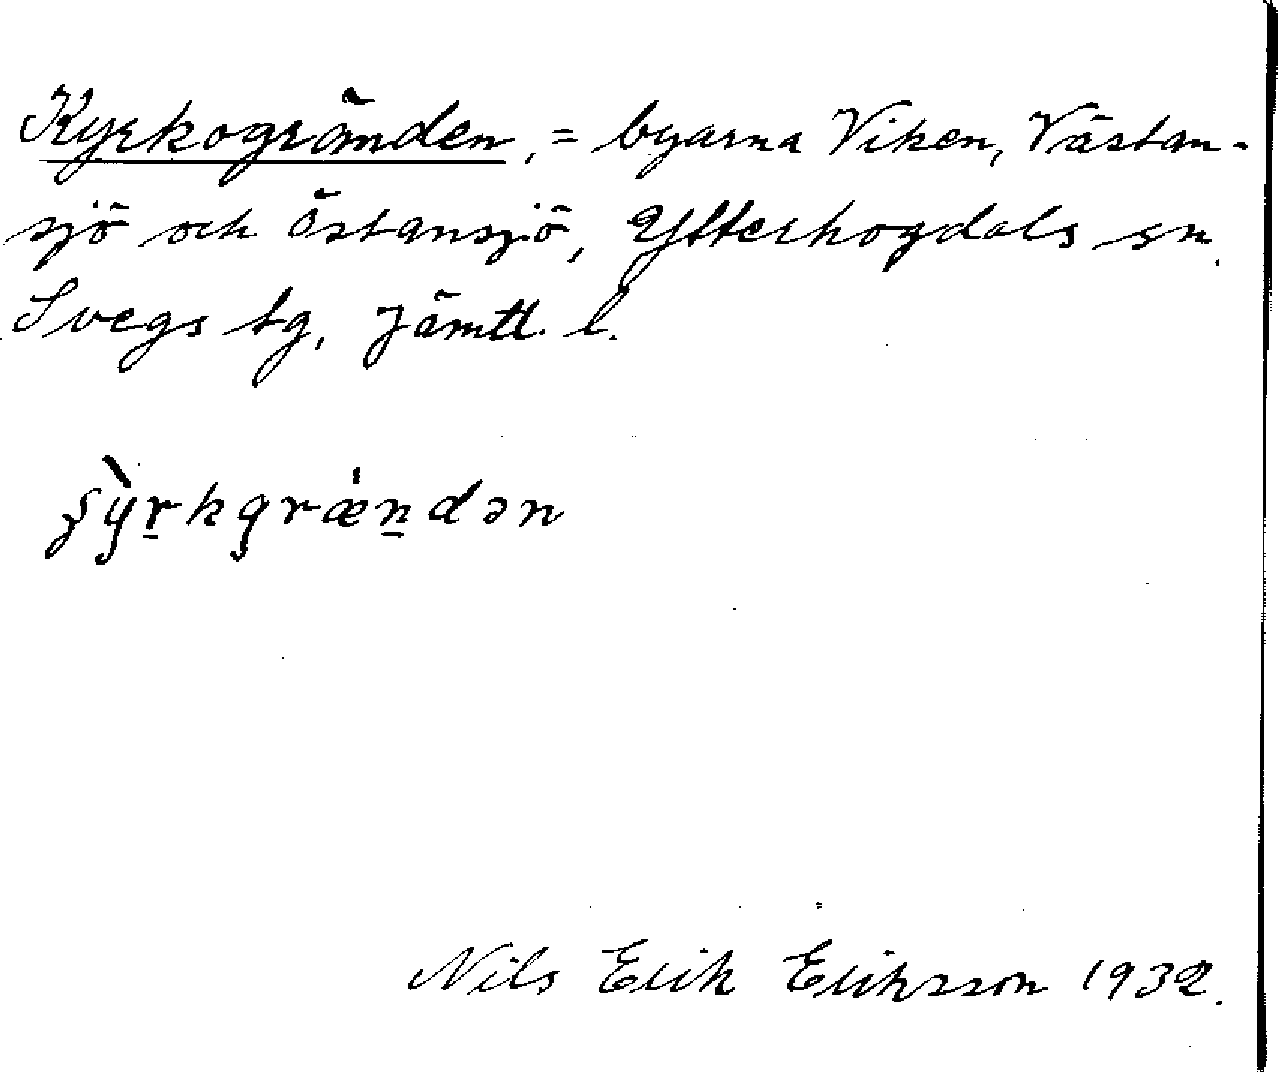 Kyrkogränden, = byarna Viken, Västan-
sjö och Östansjö, Ytterhogdals sn.
Svegs tg, Jämtl. l.
ʂỳr̠kgrǽn̠dən
Nils Erik Eriksson 1932.